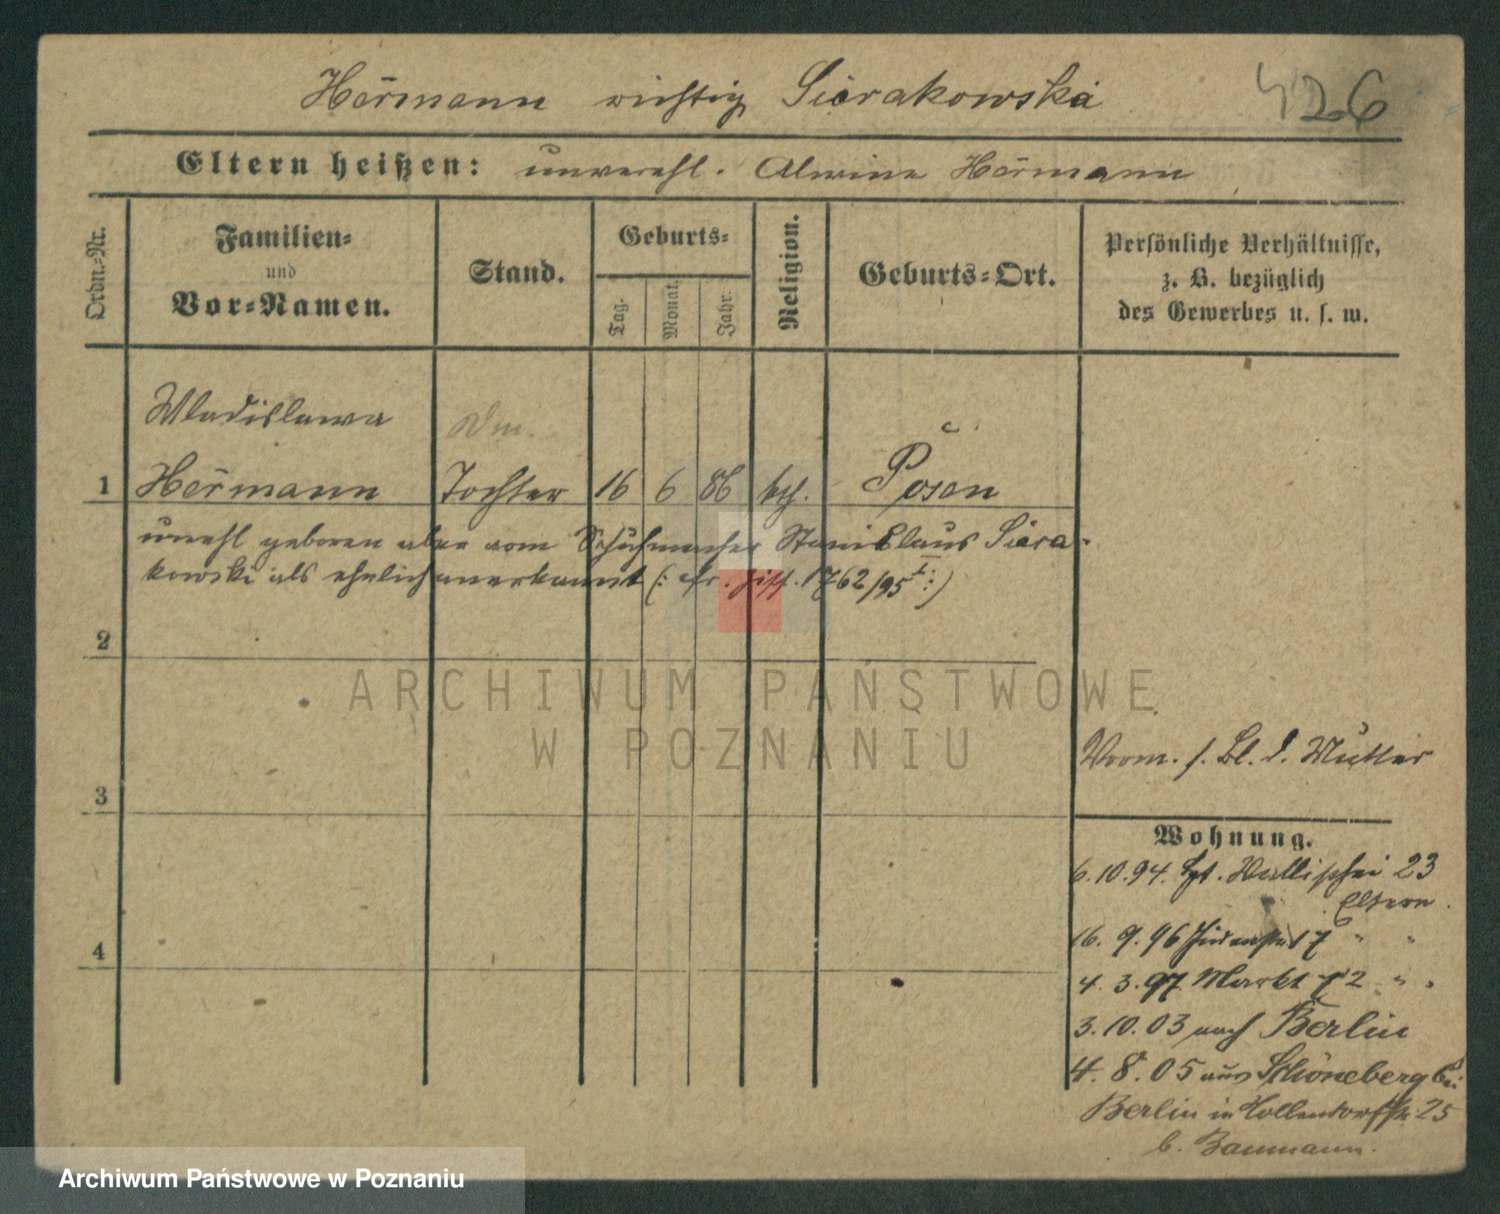 Hermann richtig Sierakowski
426
Eltern heißen: unverehl. Alwine Hermann
Ordn.-Nr.
Familien-
und
Vor-Namen.
Stand.
Geburts-
Tag.
Monat.
Jahr.
Religion.
Geburts-Ort.
Persönliche Verhältnisse,
z. B. bezüglich
des Gewerbes u. s. w.
Wladislawa
1 Hermann Tochter 16 6 86 kth. Posen
unehl geboren aber vom Schuhmacher Stanislaus Siera-
kowski als ehelich anerkannt (: cfr. 1762/95 :)
2
ARCHIWUM PAŃSTWOWE
W POZNANIU
Vorm. s. Bl. d. Mutter
3
Wohnung.
6.10.94. Wallischei 23
Eltern.
16. 9. 96 Judenstr 17 " "
4
4. 3. 97 Markt 72 " "
3. 10. 03 nach Berlin
4. 8. 05 aus Schöneberg bei
Berlin 25
b. Baumann.
Archiwum Państwowe w Poznaniu